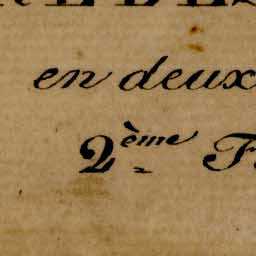 en deux
2ème